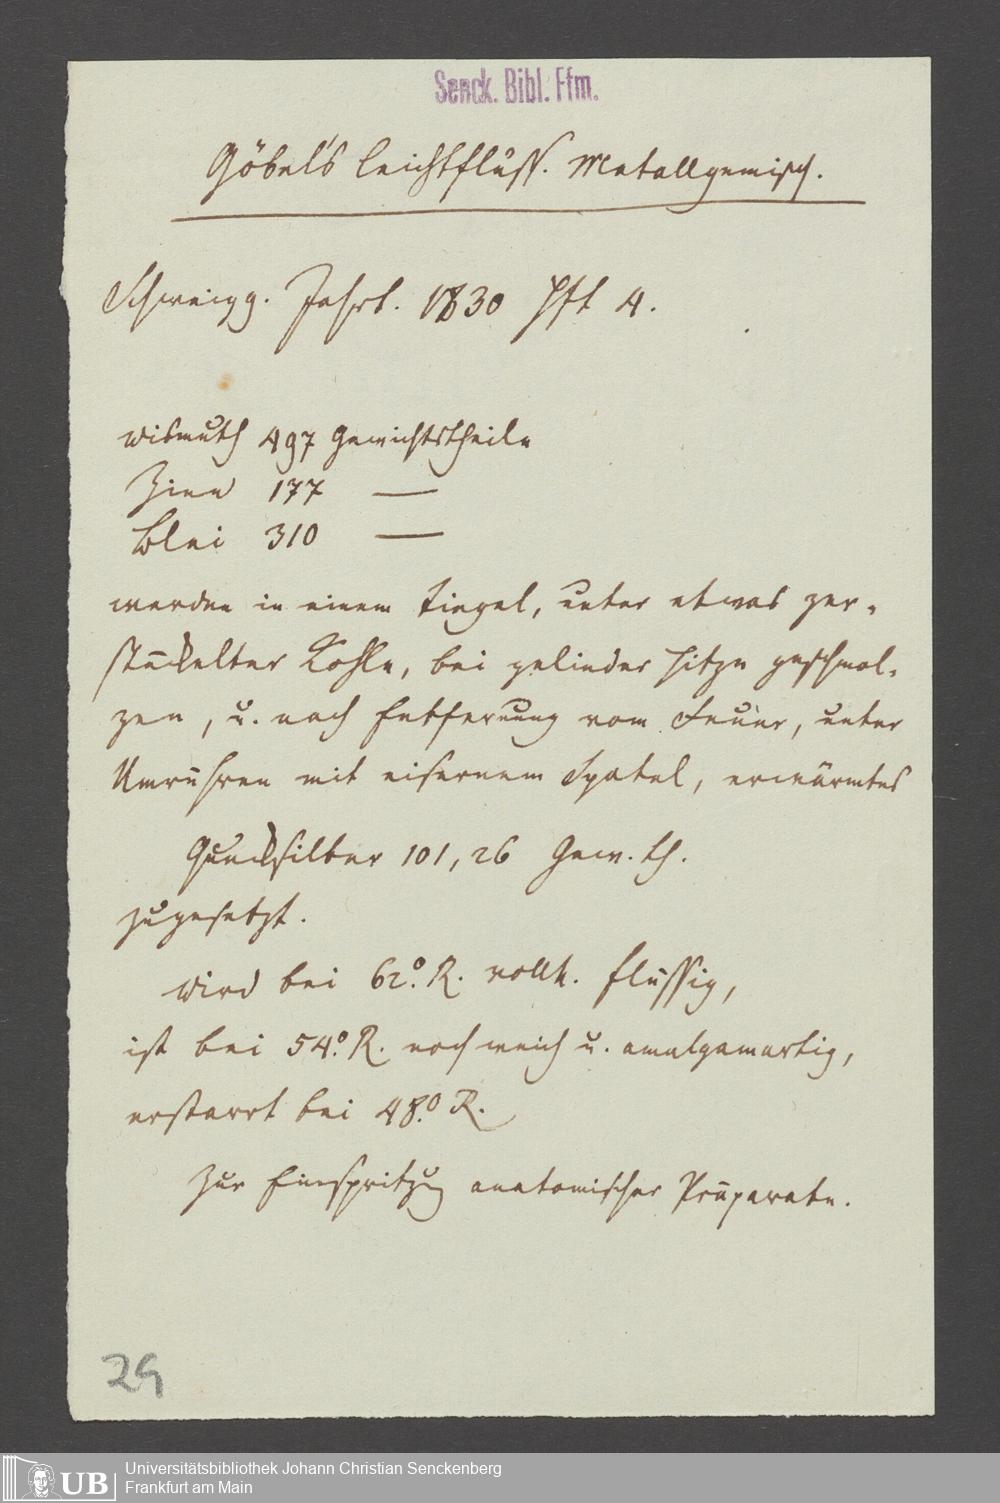 Senck. Bibl. Ffm.
Göbel's leichtflüss. Metallgemisch.
Schweigg. Jahrb. 1830 Hft 4.
Wismuth 497 Gewichtstheile
Zinn 177 —
Blei 310 —
werden in einem Tiegel, unter etwas zer-
stückelter Kohle, bei gelinder Hitze geschmol-
zen, u. nach Entfernung vom Feuer, unter
Umrühren mit eisernem Spatel, erwärmtes
Quecksilber 101,26 Gew. th.
zugesetzt.
wird bei 62.° R. vollk. flüssig,
ist bei 54.° R. noch weich u. amalgamartig,
erstarrt bei 48.° R.
Zur Einspritzung anatomischer Präparate.
29
UB
Universitätsbibliothek Johann Christian Senckenberg
Frankfurt am Main